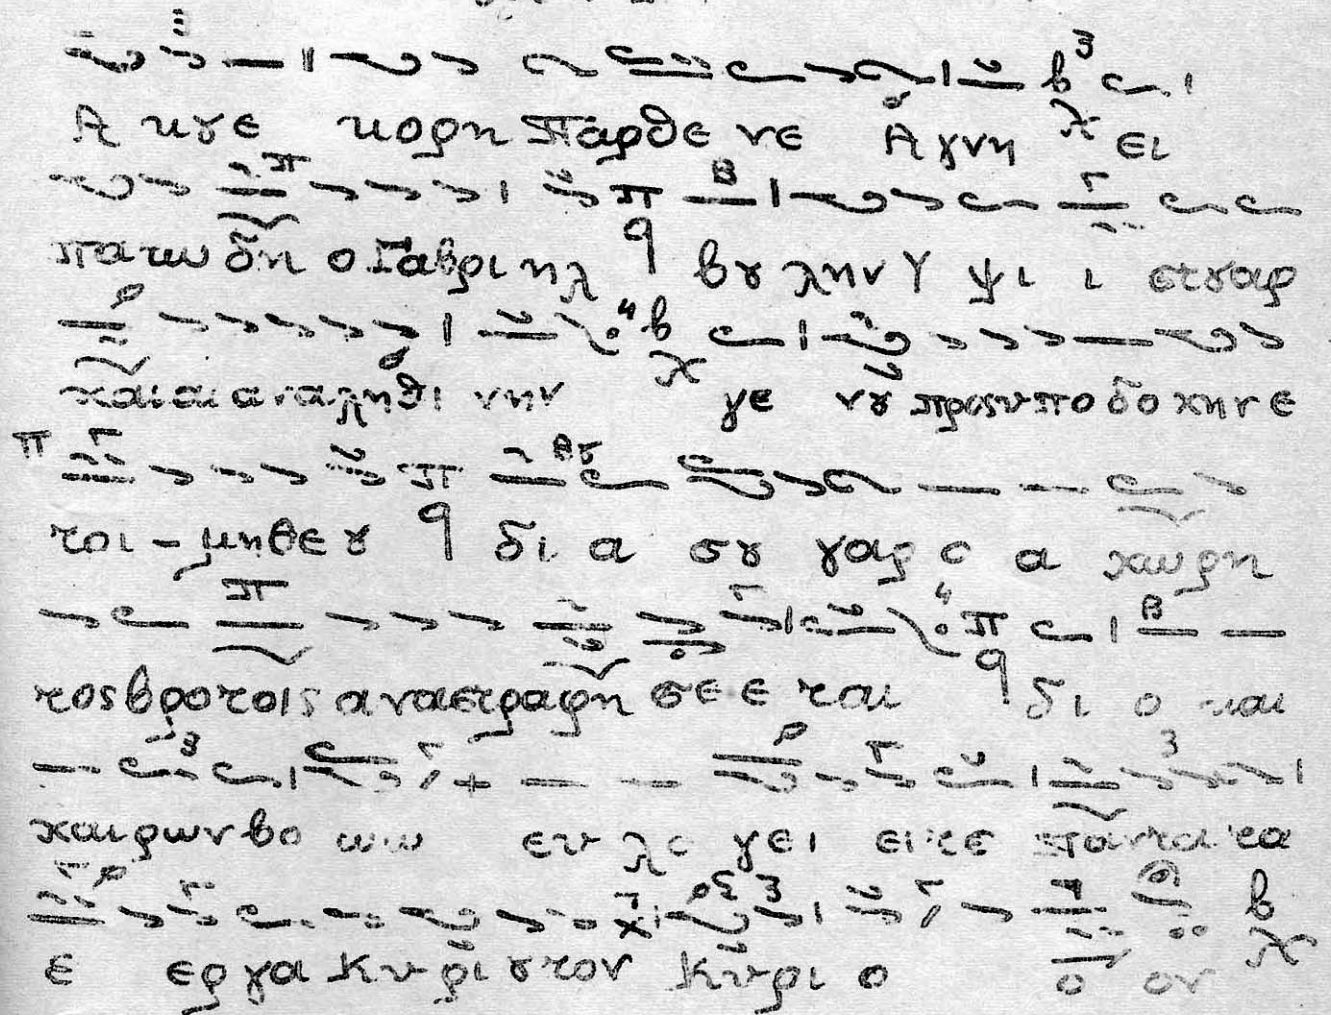 Ακȣε κορη Παρθενε Αγνη ει
πατω δη ο Γαβριηλ βȣλην Υψιιστȣ αρ
χαιαι αναληθινην γε νȣ προς υποδοχην ε
τοι-μη Θεȣ δια σȣ γαρ ο αχωρη
τος βροτοις αναστραφησεεται διο και
χαιρων βοωω ευλογειειτε παντα τα
εεργα Κυριȣ τον Κυριοοον